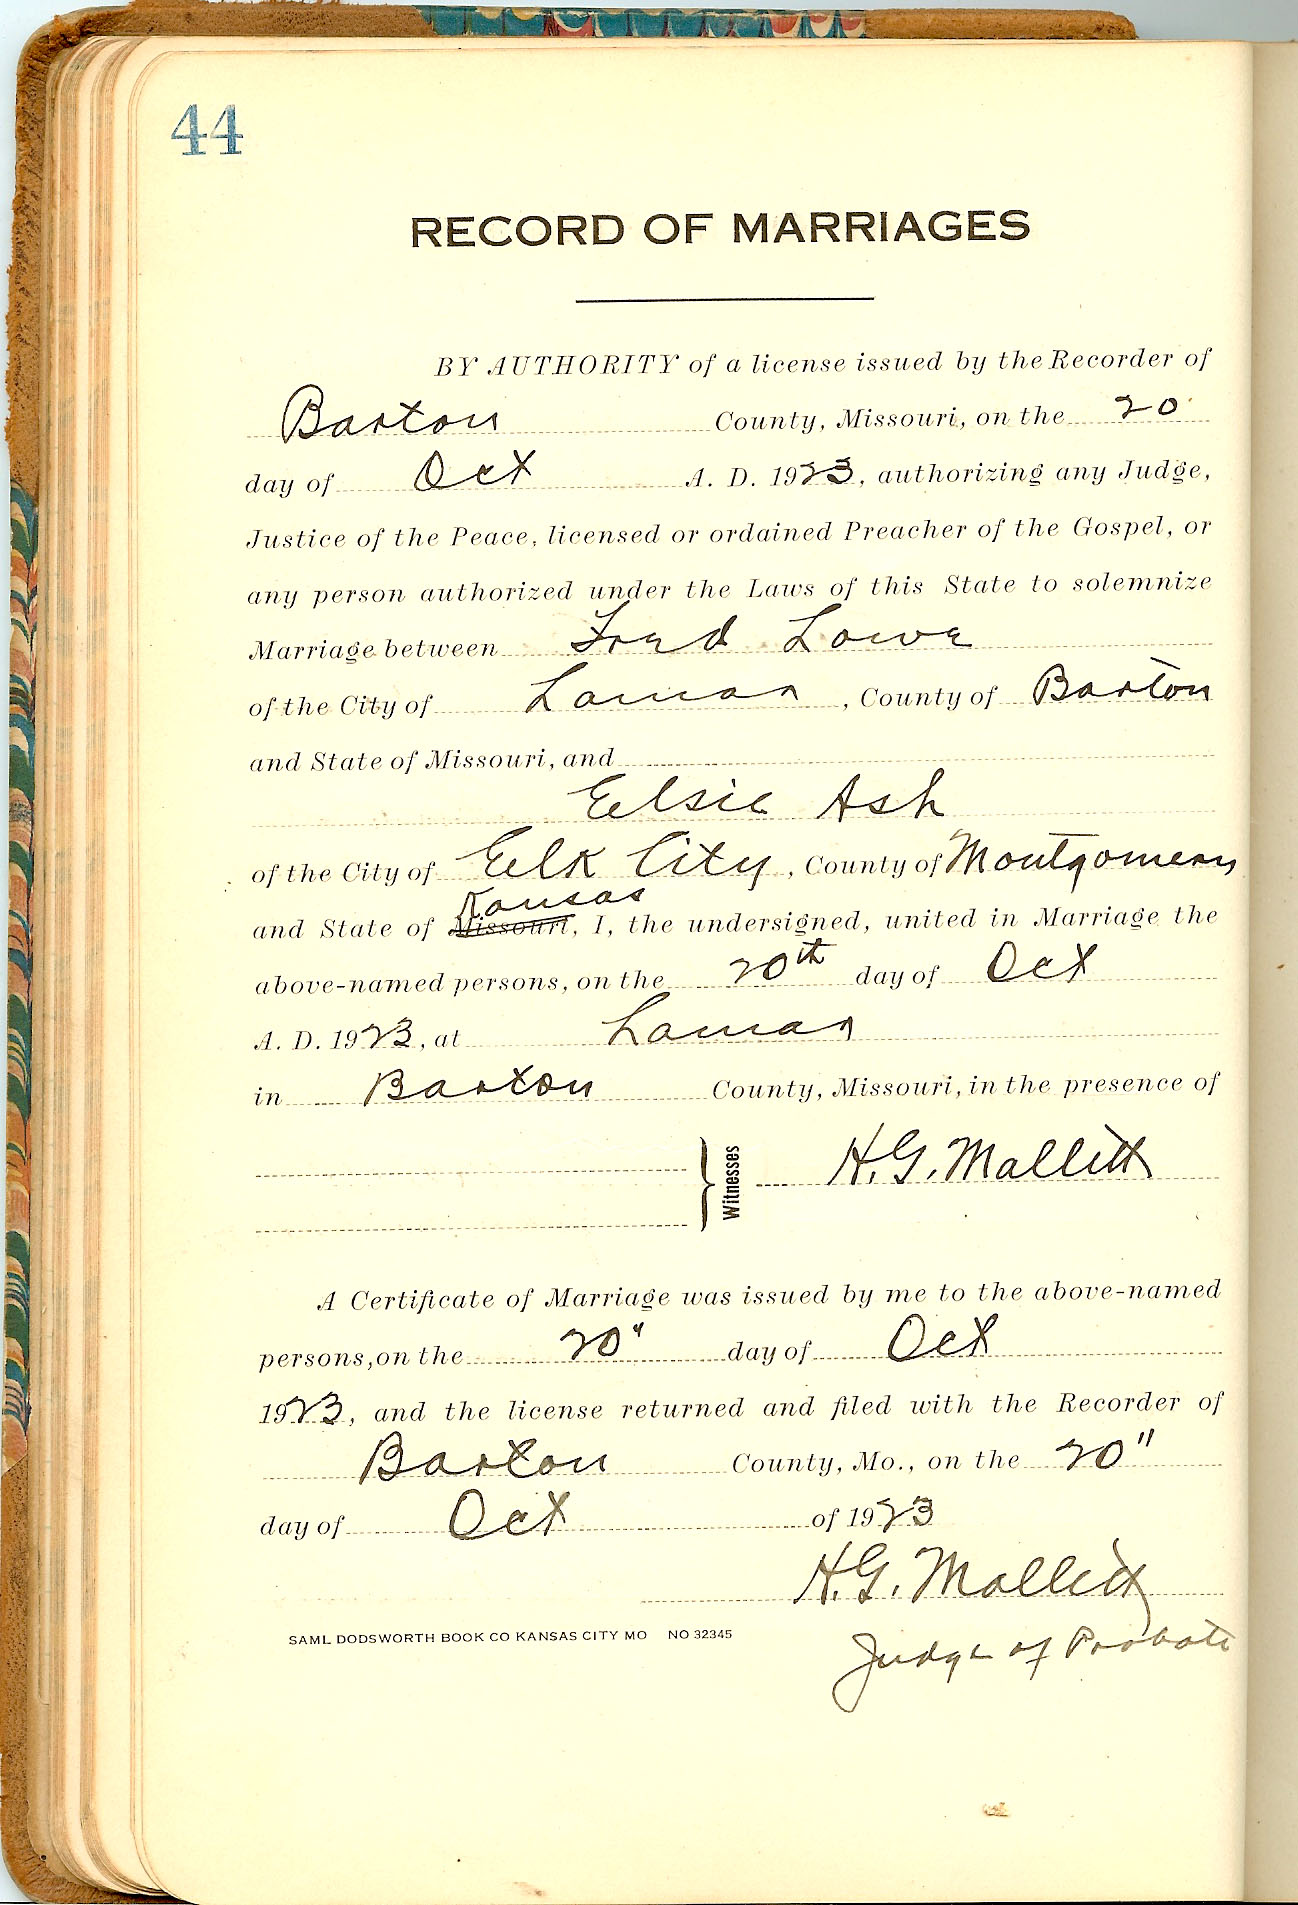 44
RECORD OF MARRIAGES
BY AUTHORITY of a license issued by the Recorder of
Barton County, Missouri, on the 20
day of Oct A. D. 1923, authorizing any Judge,
Justice of the Peace, licensed or ordained Preacher of the Gospel, or
any person authorized under the Laws of this State to solemnize
Marriage between Fred Lowe
of the City of Lamar, County of Barton
and State of Missouri, and
Elsie Ash
of the City of Elk City, County of Montgomery
Kansas
and State of Missouri, I, the undersigned, united in Marriage the
above-named persons, on the 20th day of Oct
A. D. 1923, at Lamar
in Barton County, Missouri, in the presence of
Witnesses H. G. Mallett
A Certificate of Marriage was issued by me to the above-named
persons, on the 20" day of Oct
1923, and the license returned and filed with the Recorder of
Barton County, Mo., on the 20"
day of Oct of 1923
H. G. Mallett
SAML DODSWORTH BOOK CO KANSAS CITY MO NO 32345
Judge of Probate